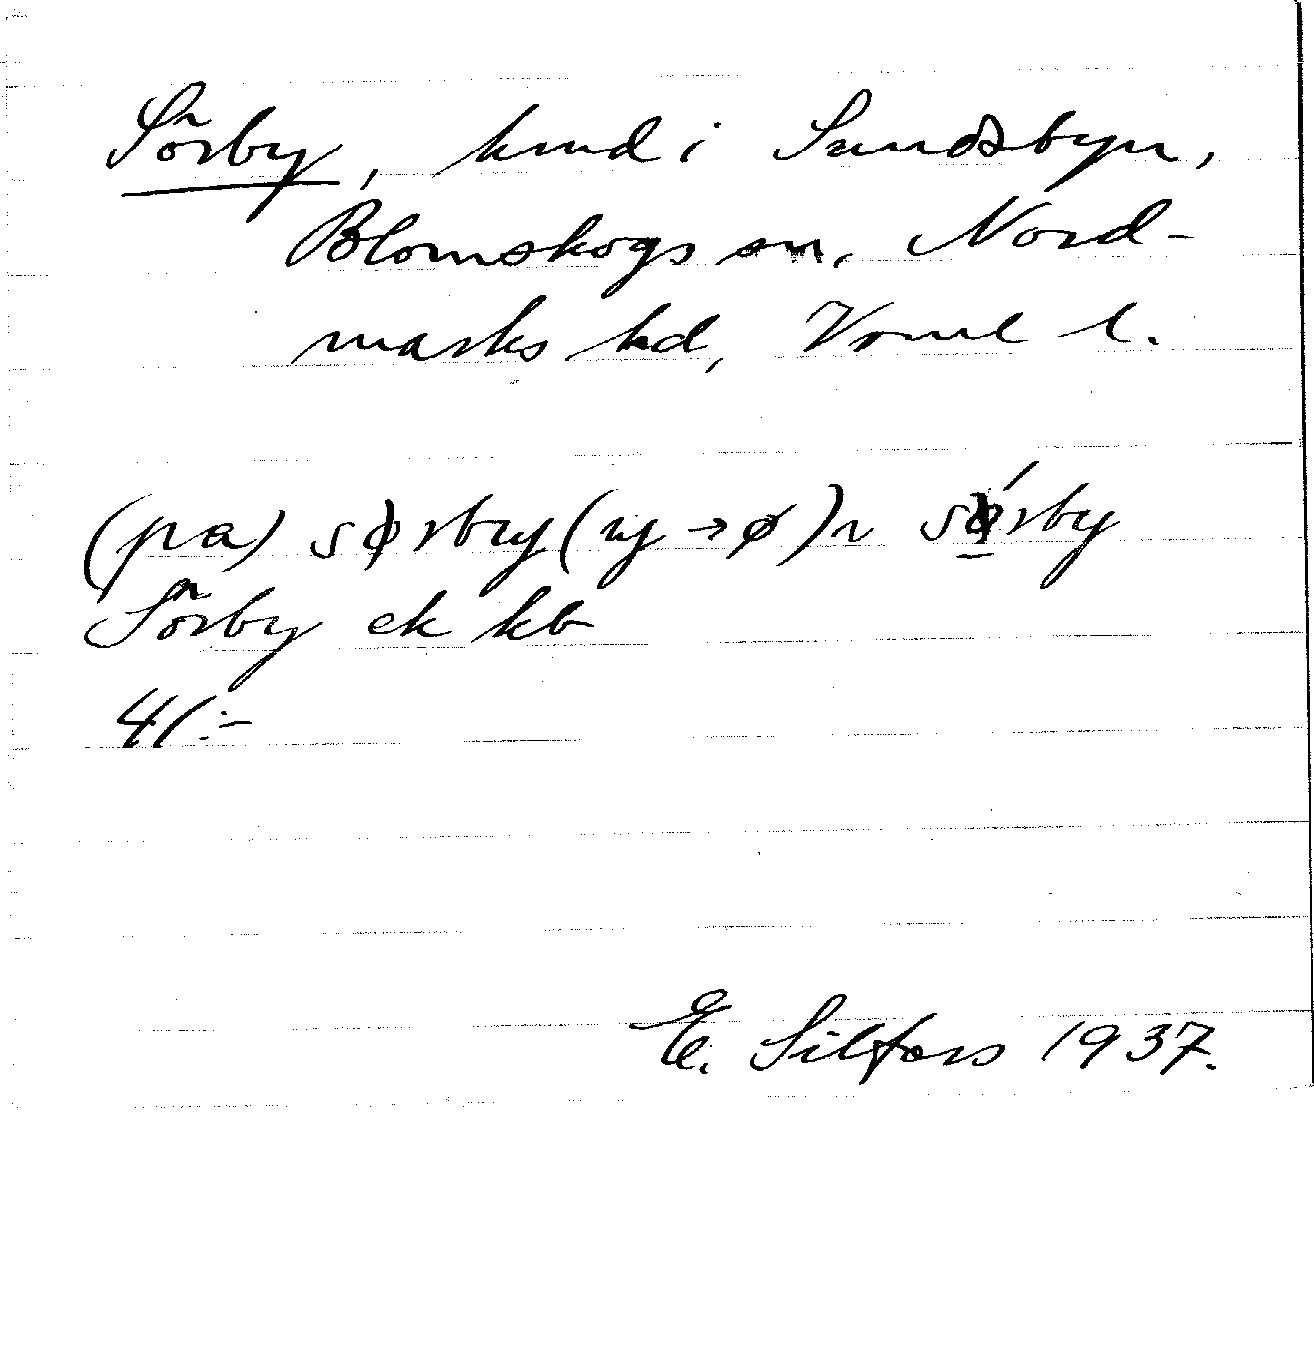 Sörby, hmd i Sundsbyn,
Blomskogs sn, Nord-
marks hd, Vrml l.
(pa) sørby (y → ø) n sǿrby
Sörby ek kb
41:-
E. Silfors 1937.